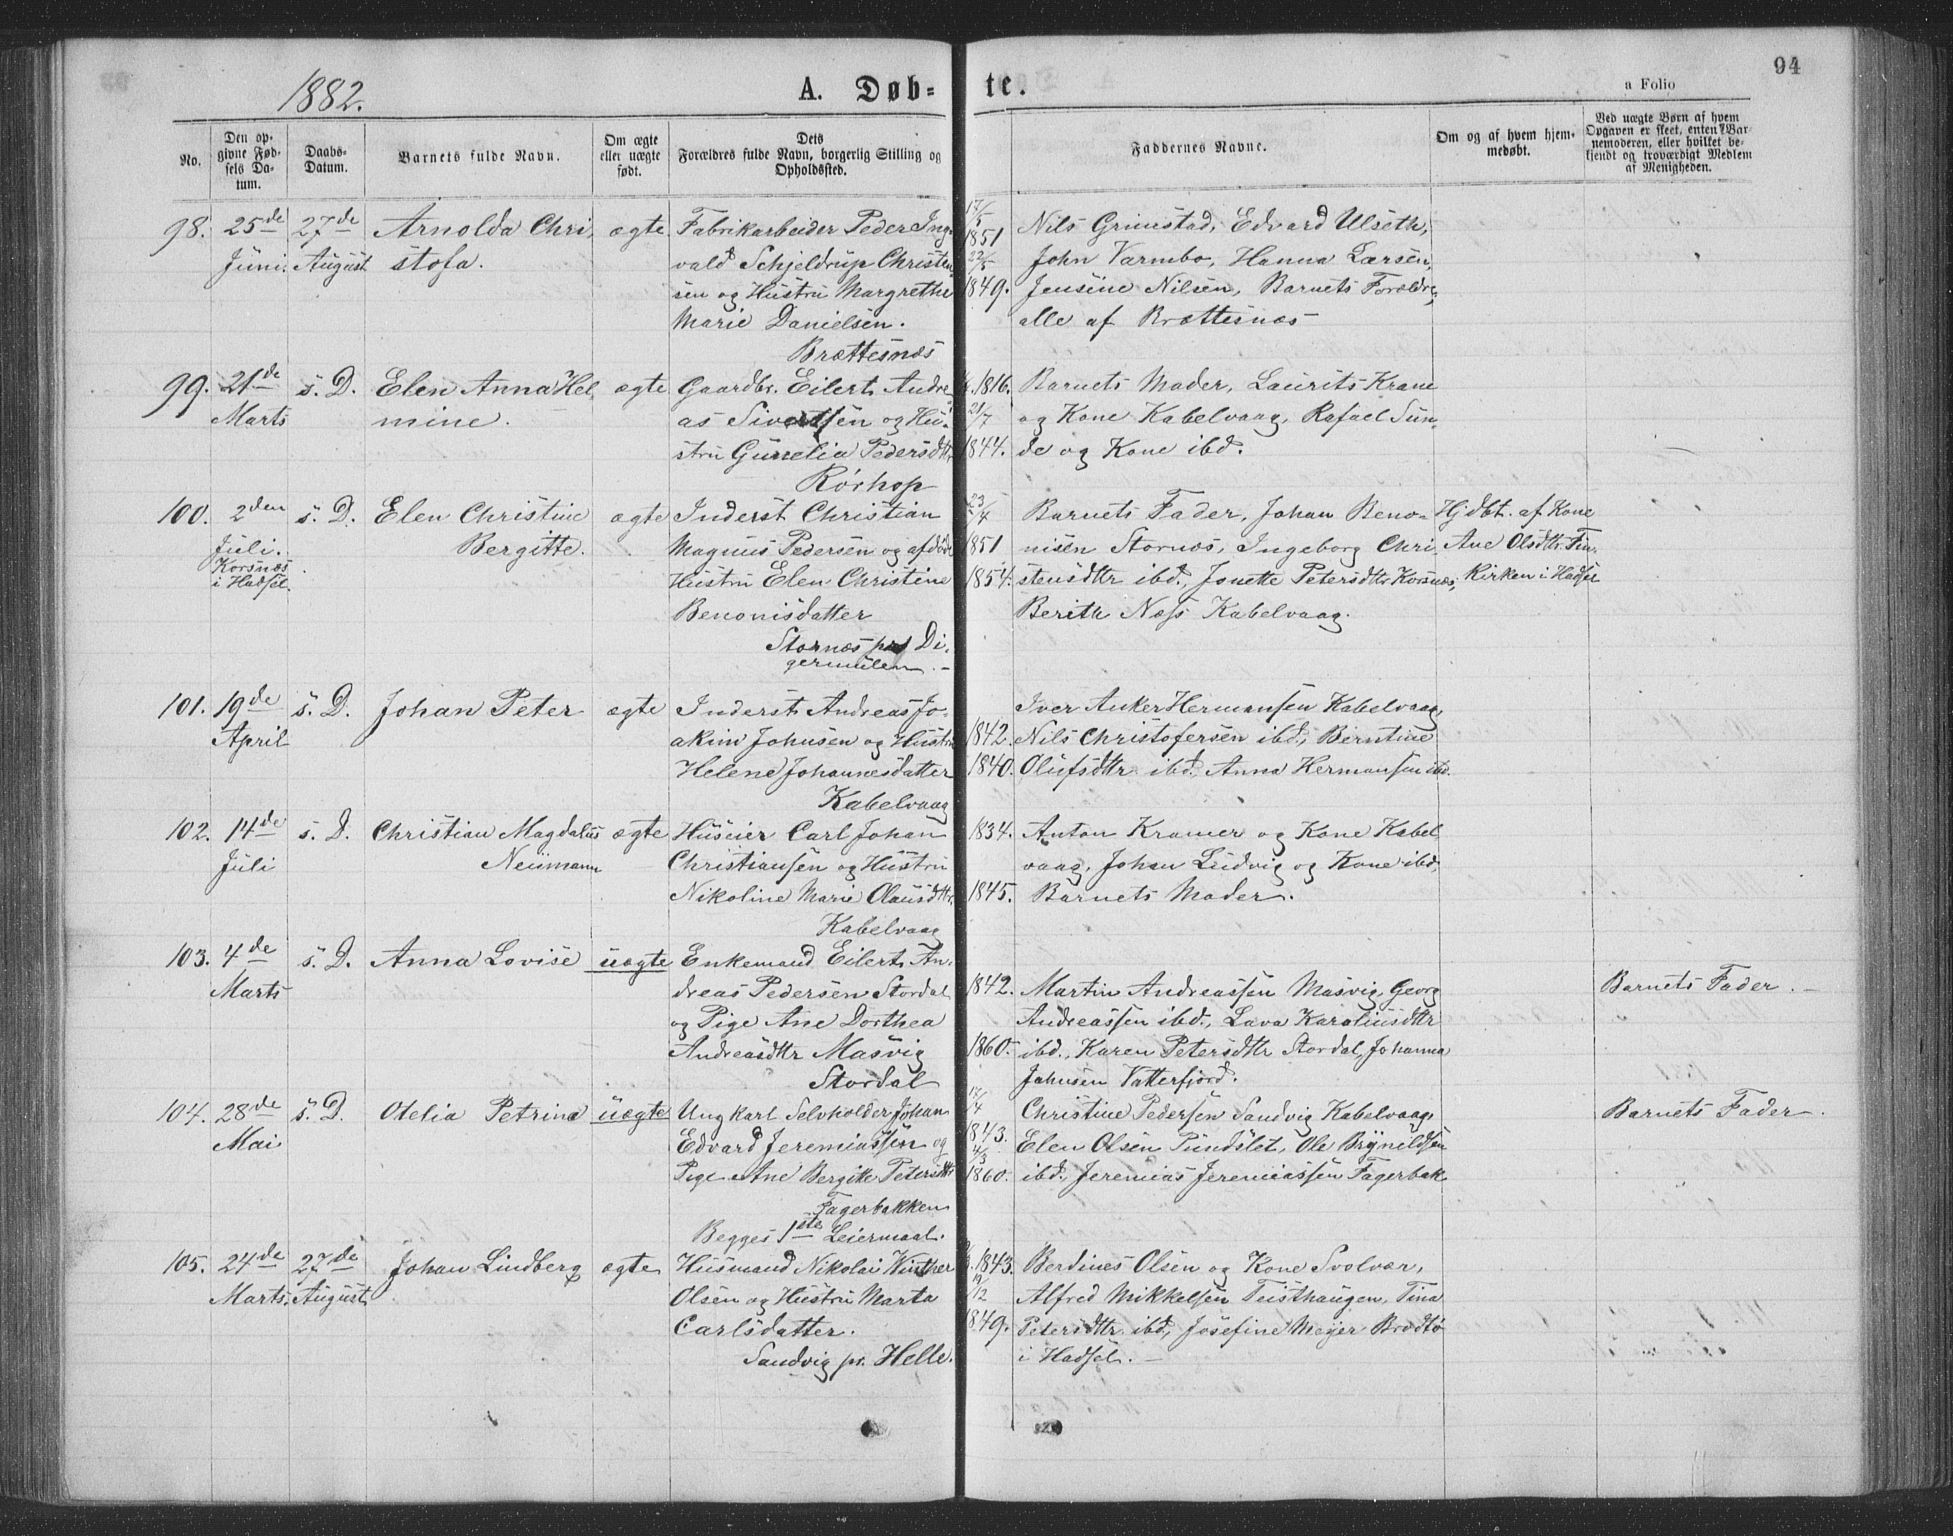 1882.
A. Døb-
te.
94
a Folio
No.
Den op-
givne Fød-
sels Da-
tum.
Daabs-
Datum.
Barnets fulde Navn.
Om ægte
eller uægte
født.
Dets
Forældres fulde Navn, borgerlig Stilling og
Opholdssted.
Faddernes Navne.
Om og af hvem hjem-
medøbt.
Ved uægte Børn af hvem
Opgaven er skeet, enten Bar-
nemoderen, eller hvilket be-
kjendt og troværdigt Medlem
af Menigheden.
98. 25de 27de Arnolda Chri, ægte Fabrikarbeider Peder Ing-
Juni. August stofa. vald Schjeldrup Christen-
sen og Hustru Margrethe
Marie Danielsen.
Brættesnæs
17/5
1851
22/5
1849.
Nils Grimstad, Edvard Ulseth,
John Varmbo, Hanna Larsen,
Jensine Nilsen, Barnets Forældre,
alle af Brættesnæs
99. 21de s. D. Elen Anna Hel, ægte Gaardbr. Eilert Andre
Marts mine. as Sivertsen og Hu-
stru Gunelia Pedersdtr.
Rörhop
1816.
21/7
1844.
Barnets Moder, Laurits Krane
og Kone Kabelvaag, Rafael Sun-
de og Kone ibd.
100. 2den s. D. Elen Christine ægte Inderst Christian
Juli. Bergitte. Magnus Pedersen og afdöde
Korsnæs Hustru Elen Christine
i Hadsel. Benonisdatter
Stornæs pr Di-
germulen.
23/4
1851
1854.
Barnets Fader, Johan Beno-
nisen Stornæs, Ingeborg Chri-
stensdtr ibd., Jonette Petersdtr Korsnæs,
Berith Næss Kabelvaag.
Hjdbt. af Kone
Ane Olsdtr. Fin-
Kirken i Hadsel
101. 19de s. D. Johan Peter ægte Inderst Andreas Jo-
April akim Johnsen og Hustru
Helene Johannesdatter
Kabelvaag
1842.
1840.
Iver Anker Hermansen Kabelvaag
Nils Christofersen ibd., Berntine
Olufsdtr ibd. Anna Hermansen ibd.
102. 14de s. D. Christian Magdalus ægte Huseier Carl Johan
Juli Neumann Christiansen og Hustru
Nikoline Marie Olausdtr.
Kabelvaag
1834.
1845.
Anton Kramer og Kone Kabel
vaag, Johan Ludvig og Kone ibd,
Barnets Moder.
103. 4de s. D. Anna Lovise uægte Enkemand Eilert An-
Marts dreas Pedersen Stordal
og Pige Ane Dorthea
Andreasdtr Masvig
Stordal
1842.
1860.
Martin Andreassen Masvig, Georg
Andreassen ibd., Lava Karoliusdtr
ibd., Karen Petersdtr Stordal, Johanna
Johnsen Vatterfjord.
Barnets Fader.
104. 28de s. D. Otelia Petrina uægte Ungkarl Selvholder Johan
Mai Edvard Jeremiassen og
Pige Ane Bergitte Petersdtr
Fagerbakken
Begges 1ste Leiermaal.
17/4
1843.
4/3
1860.
Christine Pedersen Sandvig Kabelvaag,
Elen Olsen Pundslet, Ole Brynildsen
ibd., Jeremias Jeremiassen Fagerbak
Barnets Fader.
105. 24de 27de Johan Lindberg ægte Husmand Nikolai Winther
Marts. August Olsen og Hustru Marta
Carlsdatter.
Sandvig pr. Helle.
1843.
19/12
1849.
Berdines Olsen og Kone Svolvær,
Alfred Mikkelsen Teisthaugen, Tina
Petersdtr ibd, Josefine Meyer Brodtø
i Hadsel.